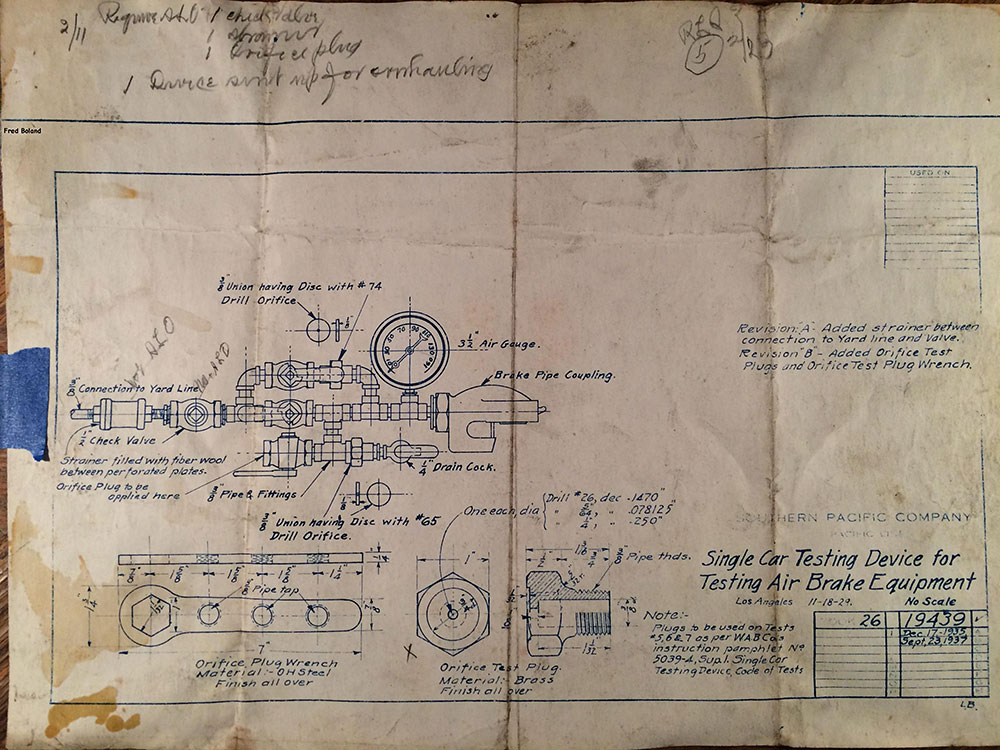 2/11 Require S.L.O. 1 check valve
1 strainer
1 Orifice plug
1 Device sent up for overhauling
5
Fred Boland
USED ON
3/8" Union having Disc with #74
Drill Orifice
3 1/2" Air Gauge.
Brake Pipe Coupling.
Revision "A" - Added strainer between
connection to Yard line and Valve.
Revision "B" - Added Orifice Test
Plugs and Orifice Test Plug Wrench.
3/8" Connection to Yard Line
1/2" Check Valve
Strainer filled with fiber wool
between perforated plates.
Orifice Plug to be
applied here
3/8" Pipe & Fittings
1/4" Drain Cock.
3/8" Union having Disc with #65
Drill Orifice.
One each, dia.
Drill #26, dec .1470"
" 5/64", " .078125"
" 1/4", " .250"
SOUTHERN PACIFIC COMPANY
PACIFIC LINES
Single Car Testing Device for
Testing Air Brake Equipment
Los Angeles 11-18-29. No Scale
26 19439
Dec. 17-1935
Sept. 23, 1937
3/8" Pipe thds.
Pipe tap
7"
1"
Orifice Plug Wrench
Material:- OH Steel
Finish all over
Orifice Test Plug.
Material:- Brass
Finish all over
Note:-
Plugs to be used on Tests
#5,6 & 7 as per W.A.B.Co's
instruction pamphlet No
5039-4, Sup.1. Single Car
Testing Device, Code of Tests
L.B.